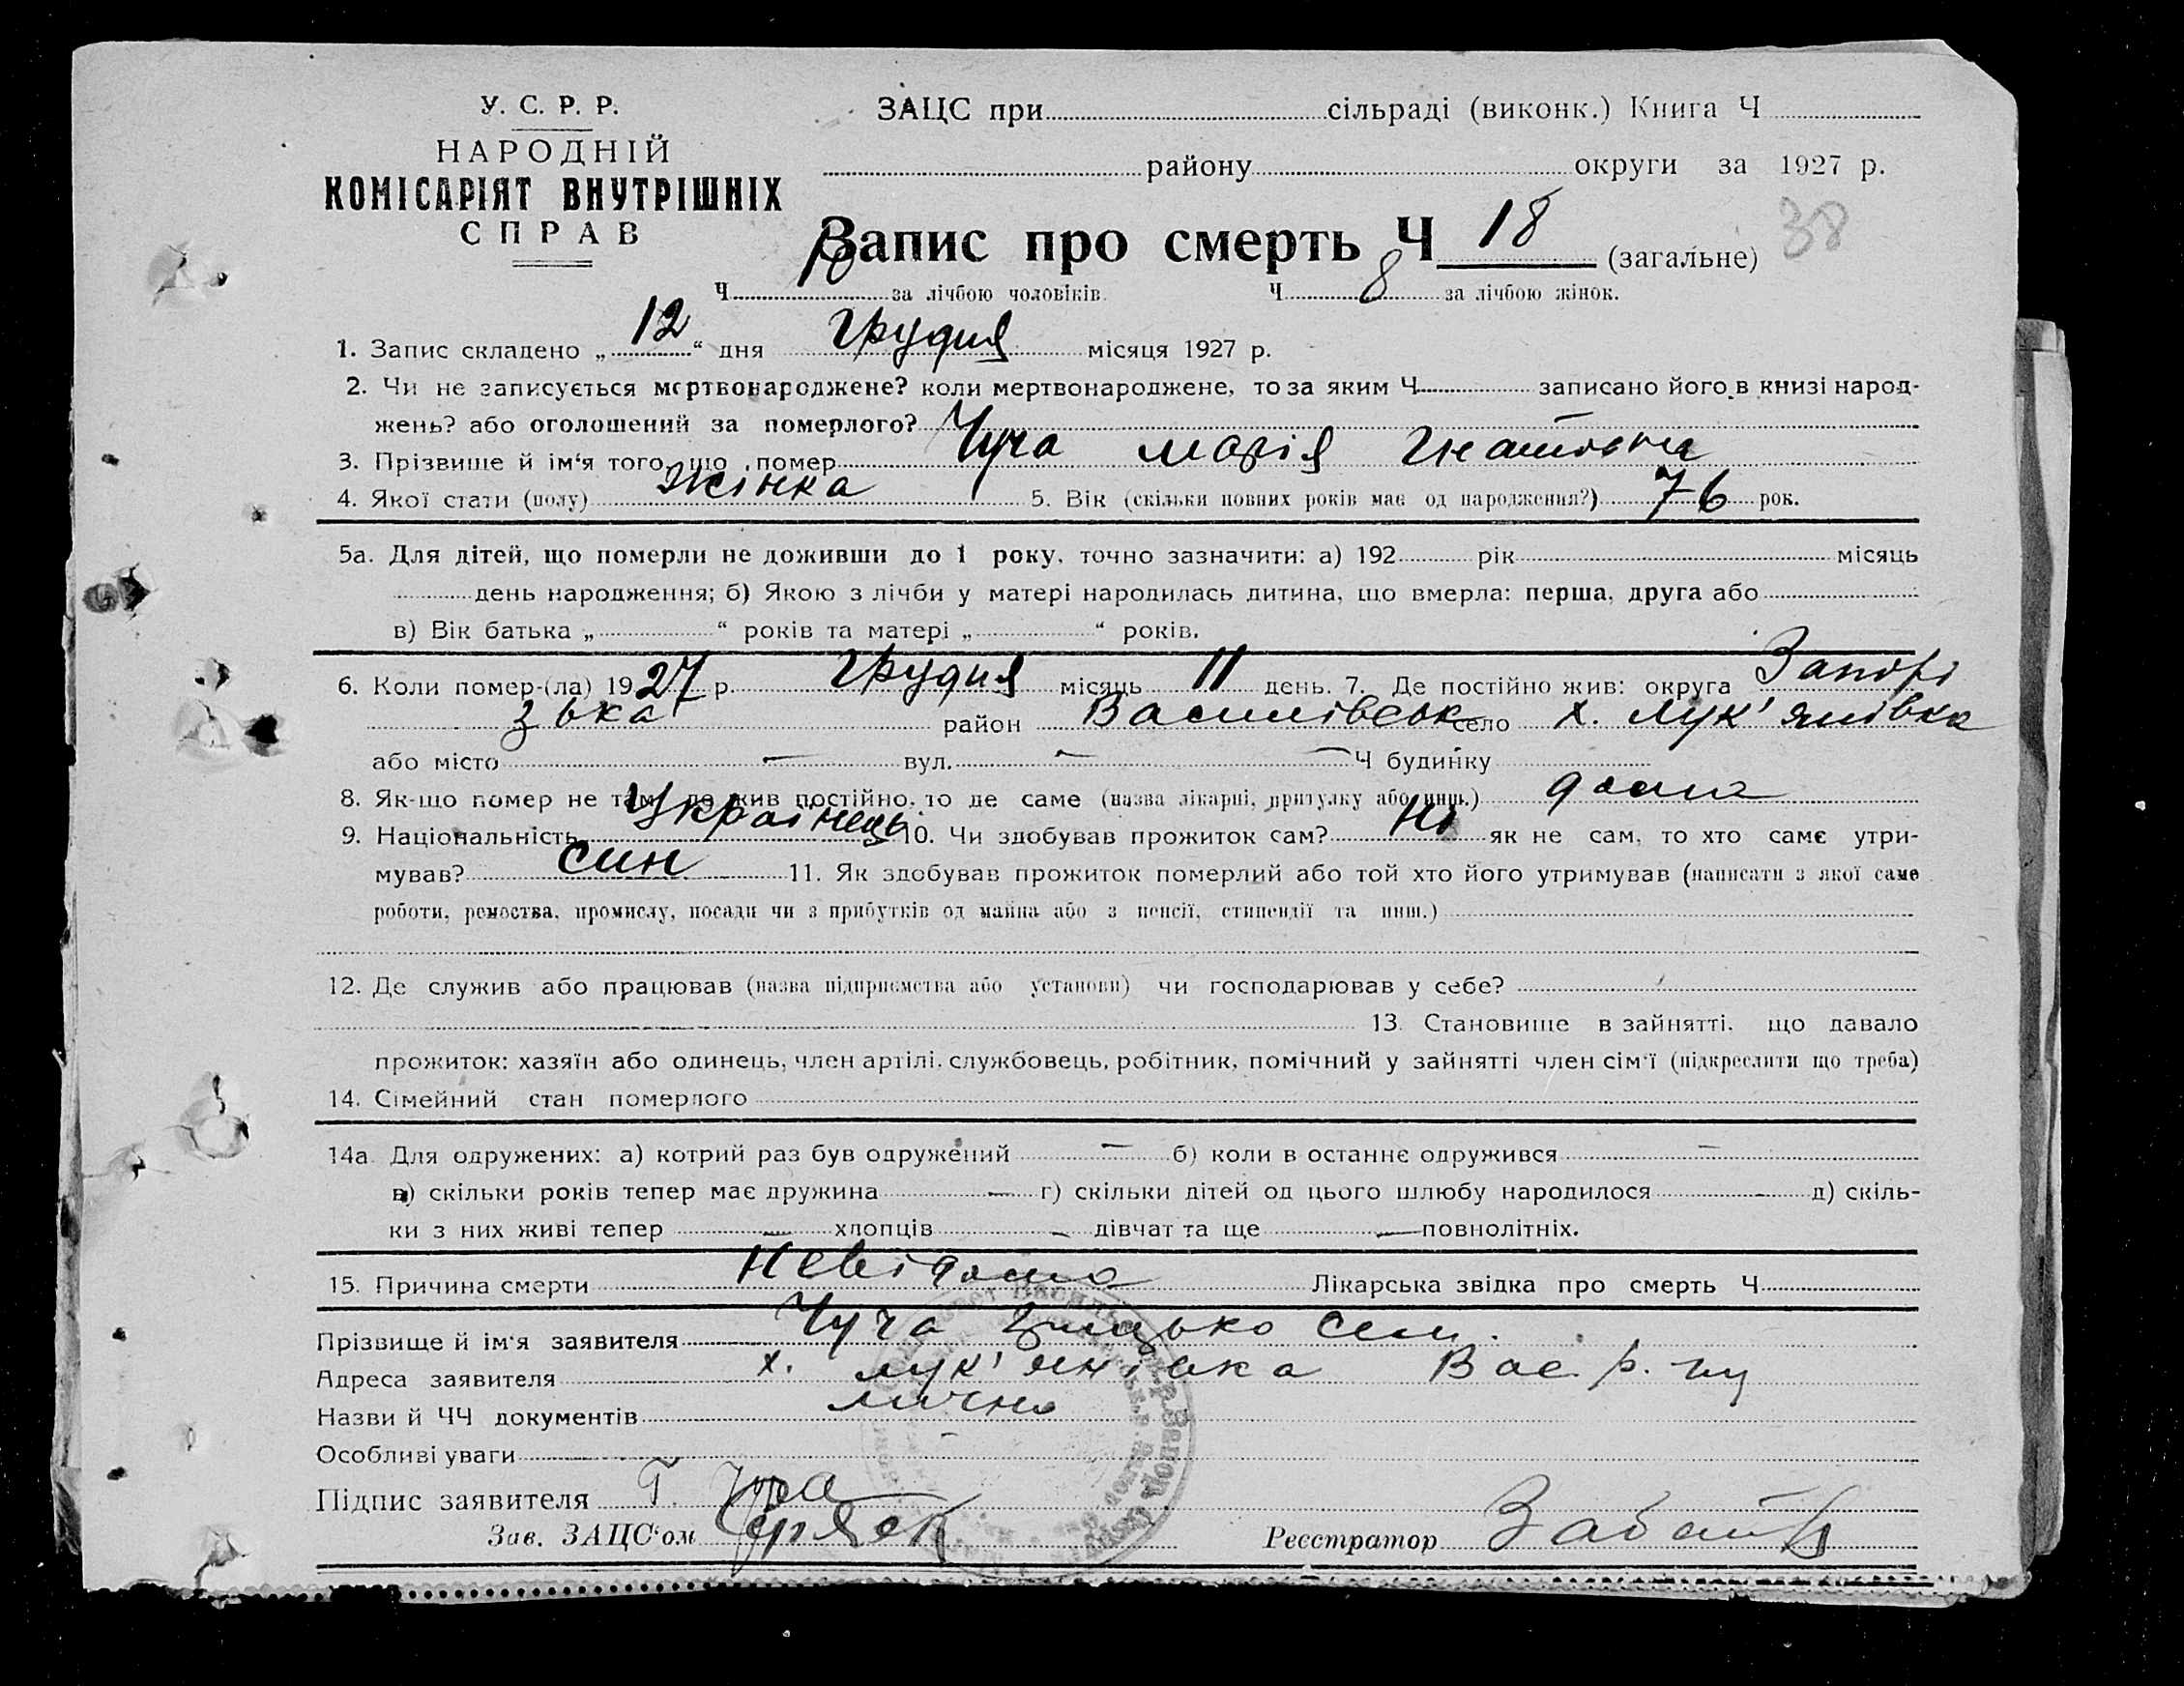 У. С. Р. Р.
НАРОДНІЙ
КОМІСАРІЯТ ВНУТРІШНІХ
СПРАВ
ЗАЦС при сільраді (виконк.) Книга Ч
району округи за 1927 р.
Запис про смерть Ч 18 (загальне) 38
Ч 10 за лічбою чоловіків. Ч 8 за лічбою жінок.
1. Запис складено „12“ дня Грудня місяця 1927 р.
2. Чи не записується мертвонароджене? коли мертвонароджене, то за яким Ч записано його в книзі народ-
жень? або оголошений за померлого?
3. Прізвище й ім'я того, що помер Чуча Марія Гнатовна
4. Якої стати (полу) Жінка 5. Вік (скільки повних років має од народження?) 76 рок.
5а. Для дітей, що померли не доживши до 1 року, точно зазначити: а) 192 рік місяць
день народження; б) Якою з лічби у матері народилась дитина, що вмерла: перша, друга або
в) Вік батька „ “ років та матері „ “ років.
6. Коли помер-(ла) 1927 р. Грудня місяць 11 день. 7. Де постійно жив: округа Запорі
зька район Василівськ село х. Лук'янівка
або місто — вул. — — Ч будинку
8. Як-що помер не там, де жив постійно, то де саме (назва лікарні, притулку або инш.) дома
9. Національність Українець 10. Чи здобував прожиток сам? Ні як не сам, то хто саме утри-
мував? син 11. Як здобував прожиток померлий або той хто його утримував (написати з якої саме
роботи, ремества, промислу, посади чи з прибутків од майна або з пенсії, стипендії та инш.)
12. Де служив або працював (назва підприємства або установи) чи господарював у себе?
13. Становище в зайнятті, що давало
прожиток: хазяїн або одинець, член артілі, службовець, робітник, помічний у зайнятті член сім'ї (підкреслити що треба)
14. Сімейний стан померлого
14а. Для одружених: а) котрий раз був одружений — б) коли в останнє одружився —
в) скільки років тепер має дружина — г) скільки дітей од цього шлюбу народилося — д) скіль-
ки з них живі тепер — хлопців — дівчат та ще — повнолітніх.
15. Причина смерти Невідома Лікарська звідка про смерть Ч
Прізвище й ім'я заявителя Чуча Грицько Сем.
Адреса заявителя х. Лук'янівка Вас. р. ну
Назви й ЧЧ документів лично
Особливі уваги —
Підпис заявителя Г. Чуча
Зав. ЗАЦС'ом Реєстратор